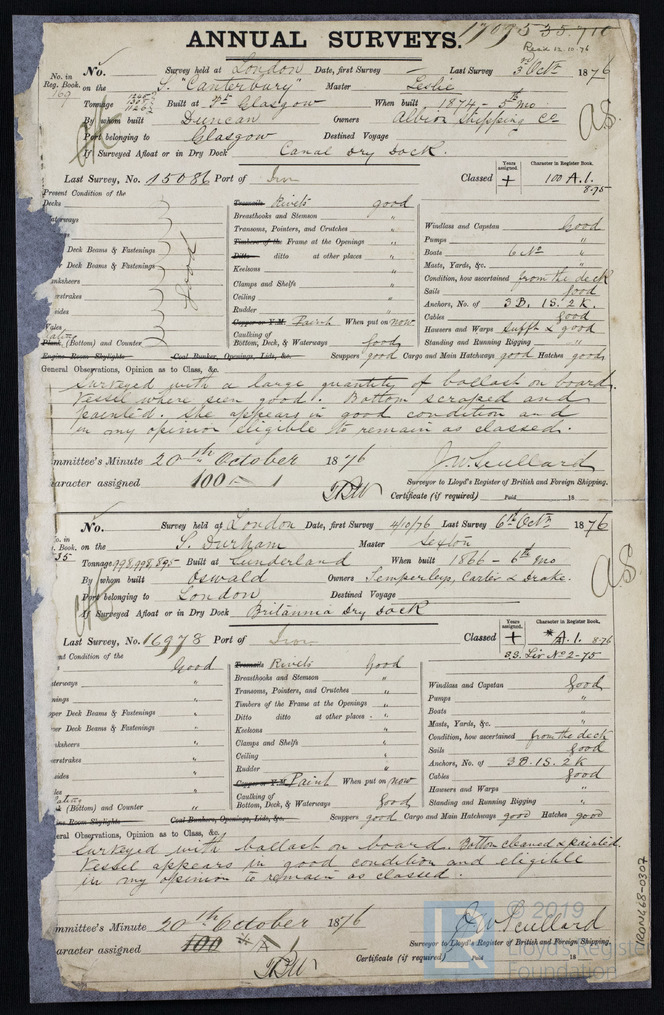 17095 35.710
ANNUAL SURVEYS.
Recd 12.10.76
No. Survey held at London Date, first Survey — Last Survey 3rd Octr 1876
No. in Reg. Book. 169 on the S. "Canterbury" Master Leslie
Tonnage Built at Pt Glasgow When built 1874 - 5th mo
By whom built Duncan Owners Albion Shipping Co
Port belonging to Glasgow Destined Voyage
If Surveyed Afloat or in Dry Dock Canal Dry Dock.
AS.
Last Survey, No. 15086 Port of Iron Classed Years assigned. + Character in Register Book. 100 A.1. 8.75
Present Condition of the
Decks
Waterways
Deck Beams & Fastenings
Deck Beams & Fastenings
(Bottom) and Counter
good
Treenails Rivets good
Breasthooks and Stemson "
Transoms, Pointers, and Crutches "
Timbers of the Frame at the Openings "
Ditto ditto at other places "
Keelsons "
Clamps and Shelfs "
Ceiling "
Rudder "
Copper or Y.M. Paint When put on now
Caulking of Bottom, Deck, & Waterways good
Windlass and Capstan Good
Pumps "
Boats 6 No "
Masts, Yards, &c. "
Condition, how ascertained from the deck
Sails good
Anchors, No. of 3B. 1S. 2K.
Cables good
Hawsers and Warps Sufft & good
Standing and Running Rigging "
Engine Room Skylights Coal Bunker, Openings, Lids, &c. Scuppers good Cargo and Main Hatchways good Hatches good
General Observations, Opinion as to Class, &c.
Surveyed with a large quantity of ballast on board.
Vessel where seen good. Bottom scraped and
painted. She appears in good condition and
in my opinion eligible to remain as classed.
mmittee's Minute 20th October 1876
aracter assigned 100 A 1
J.W. Scullard
Surveyor to Lloyd's Register of British and Foreign Shipping.
Certificate (if required) Paid 18
No. Survey held at London Date, first Survey 4/10/76 Last Survey 6th Octr 1876
o. in Book. 35 on the S. Durham Master Sexton
Tonnage 998,998,895 Built at Sunderland When built 1866 - 6th mo
By whom built Oswald Owners Temperleys, Carter & Drake.
Port belonging to London Destined Voyage
If Surveyed Afloat or in Dry Dock Britannia Dry Dock
AS.
Last Survey, No. 16978 Port of Iron Classed Years assigned. + Character in Register Book. *A.1. 8.76
S.S. Liv No 2-75
nt Condition of the Good
aterways "
nings "
per Deck Beams & Fastenings "
er Deck Beams & Fastenings "
nksheers "
erstrakes "
sides "
(Bottom) and Counter "
Treenails Rivets Good
Breasthooks and Stemson "
Transoms, Pointers, and Crutches "
Timbers of the Frame at the Openings "
Ditto ditto at other places "
Keelsons "
Clamps and Shelfs "
Ceiling "
Rudder "
Copper or Y.M. Paint When put on now
Caulking of Bottom, Deck, & Waterways Good
Windlass and Capstan Good
Pumps "
Boats "
Masts, Yards, &c. "
Condition, how ascertained from the deck
Sails good
Anchors, No. of 3B. 1S. 2K
Cables Good
Hawsers and Warps "
Standing and Running Rigging "
ine Room Skylights Coal Bunkers, Openings, Lids, &c. Scuppers good Cargo and Main Hatchways good Hatches good
eral Observations, Opinion as to Class, &c.
Surveyed with ballast on board. Bottom cleaned & painted.
Vessel appears in good condition and eligible
in my opinion to remain as classed.
mmittee's Minute 20th October 1876
aracter assigned 100 A 1
J W Scullard
Surveyor to Lloyd's Register of British and Foreign Shipping.
Certificate (if required) Paid 18
IRON468-0307
© 2019
Lloyd's Register
Foundation